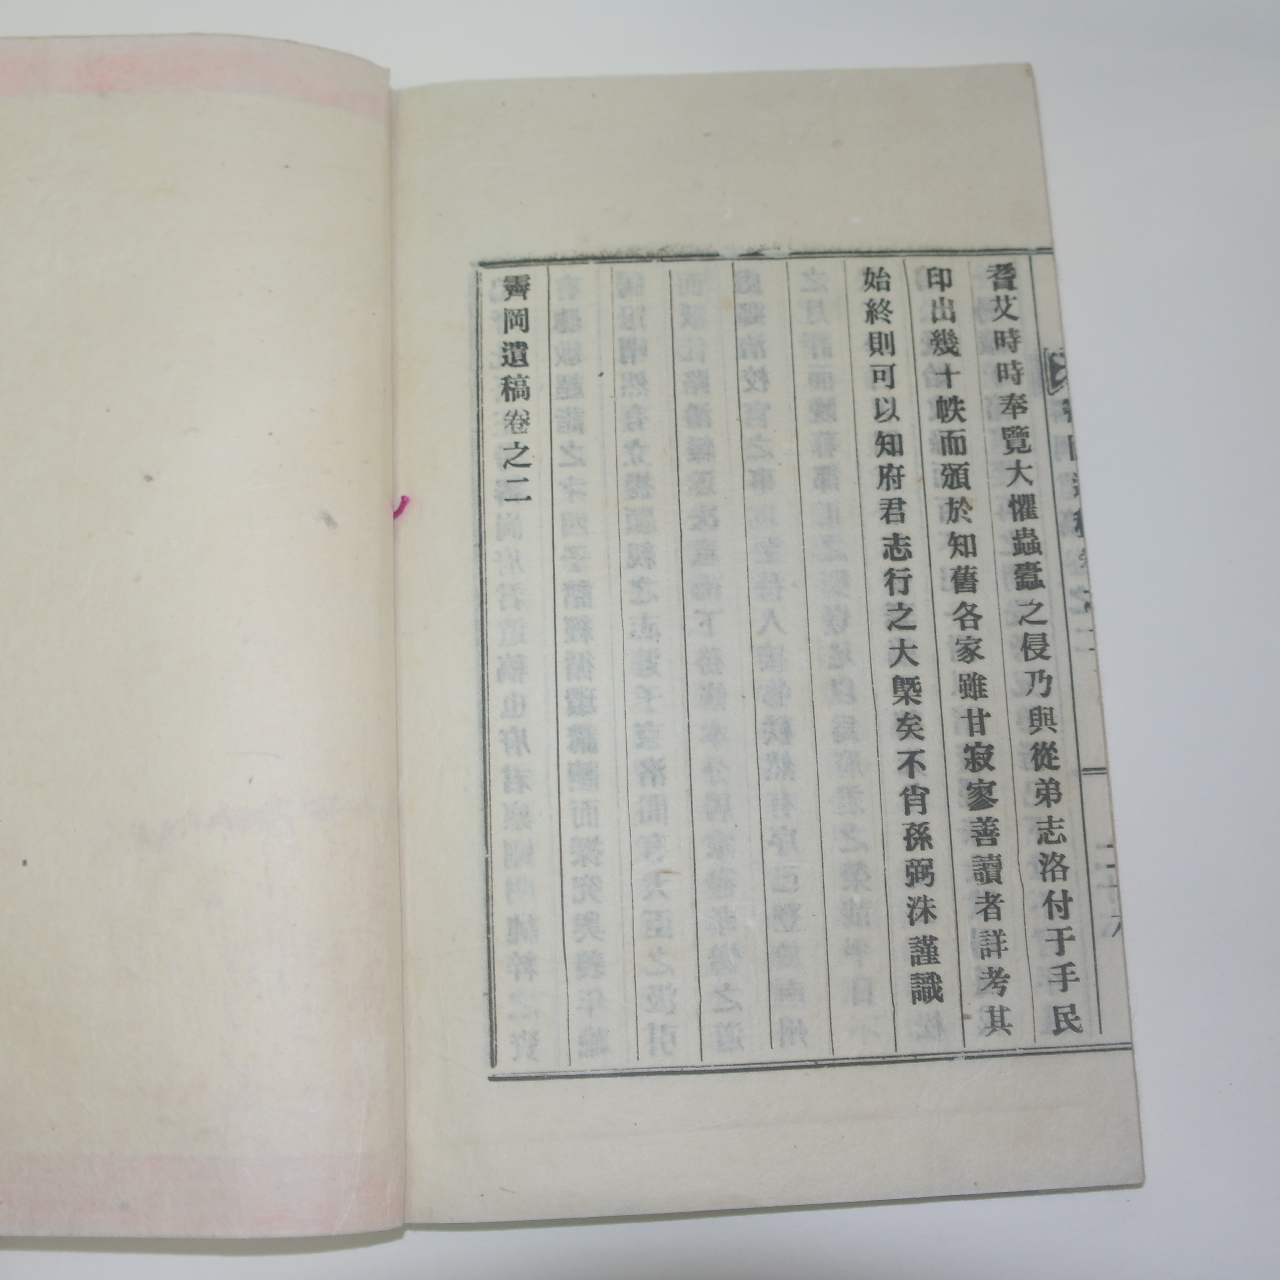 耆艾時時奉覽大懼蟲蠹之侵乃與從弟志洛付于手民
印出幾十帙而頒於知舊各家雖甘寂寥善讀者詳考其
始終則可以知府君志行之大槩矣不肖孫弼洙謹識
霽岡遺稿卷之二